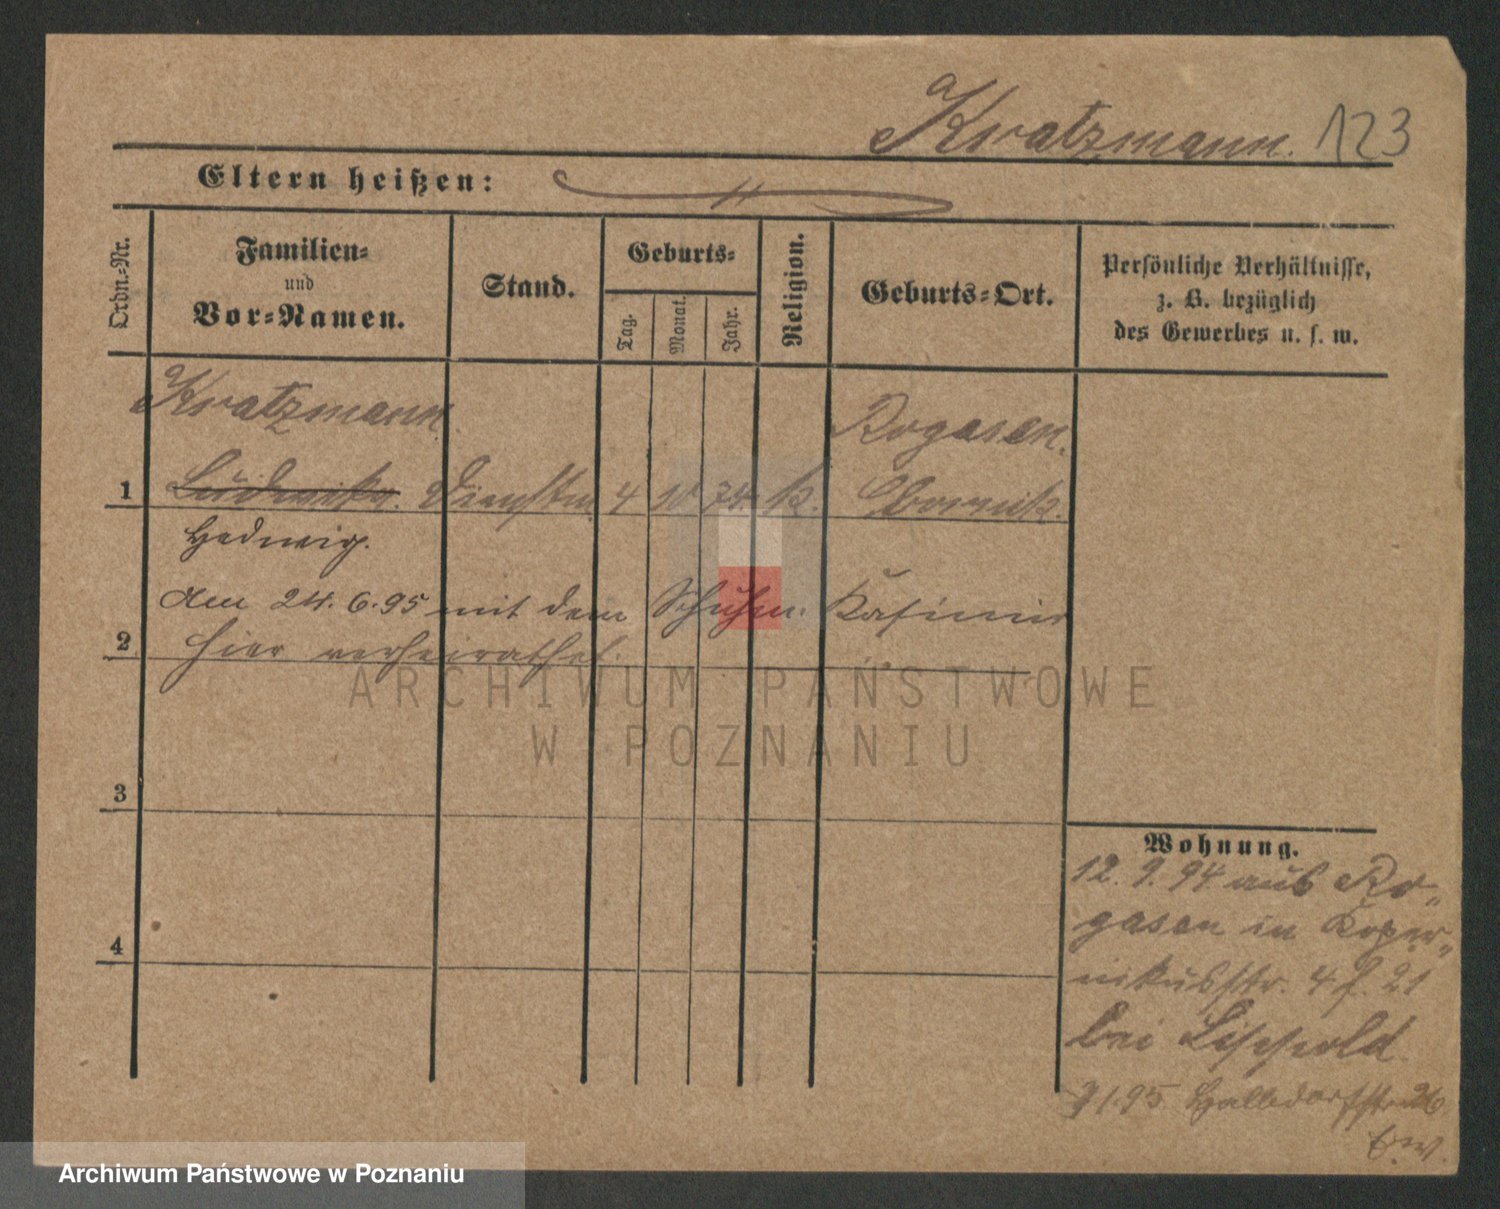 Kratzmann. 123
Eltern heißen:
Ordn.-Nr.
Familien-
und
Vor-Namen.
Stand.
Geburts-
Tag.
Monat.
Jahr.
Religion.
Geburts-Ort.
Persönliche Verhältnisse,
z. B. bezüglich
des Gewerbes u. s. w.
Kratzmann Rogasen.
1 Ludwika. Dienstm. 4 10 74. k. Obornik.
Hedwig.
Am 24.6.95 mit dem Schuhm. Kasimir
2 hier verheirathet.
3
4
Wohnung.
12.9.94 aus Ro-
gasen in Koper-
nikusstr. 4 f. 21
bei
1.95 26
ARCHIWUM PAŃSTWOWE
W POZNANIU
Archiwum Państwowe w Poznaniu